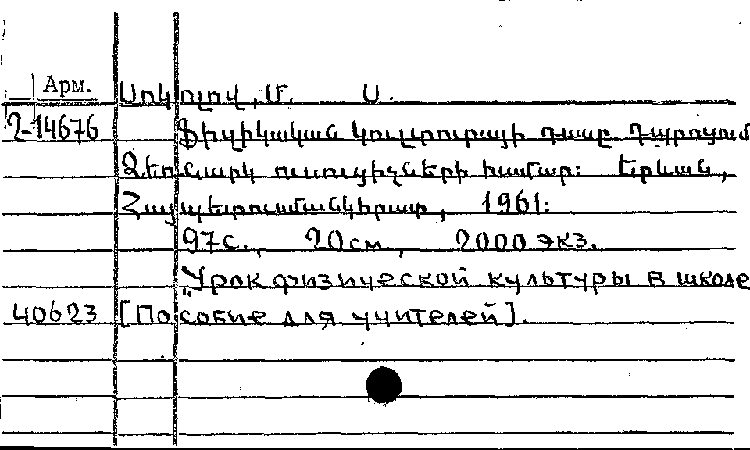 Арм.
Սոկոլով, Մ. Ս.
2-14676 Ֆիզիկական կուլտուրայի դասը դպրոցում
Ձեռնարկ ուսուցիչների համար: Երևան,
Հայպետուսմանկհրատ, 1961:
97с., 20см, 2000 экз.
"Урок физической культуры в школе
40623 [Пособие для учителей].